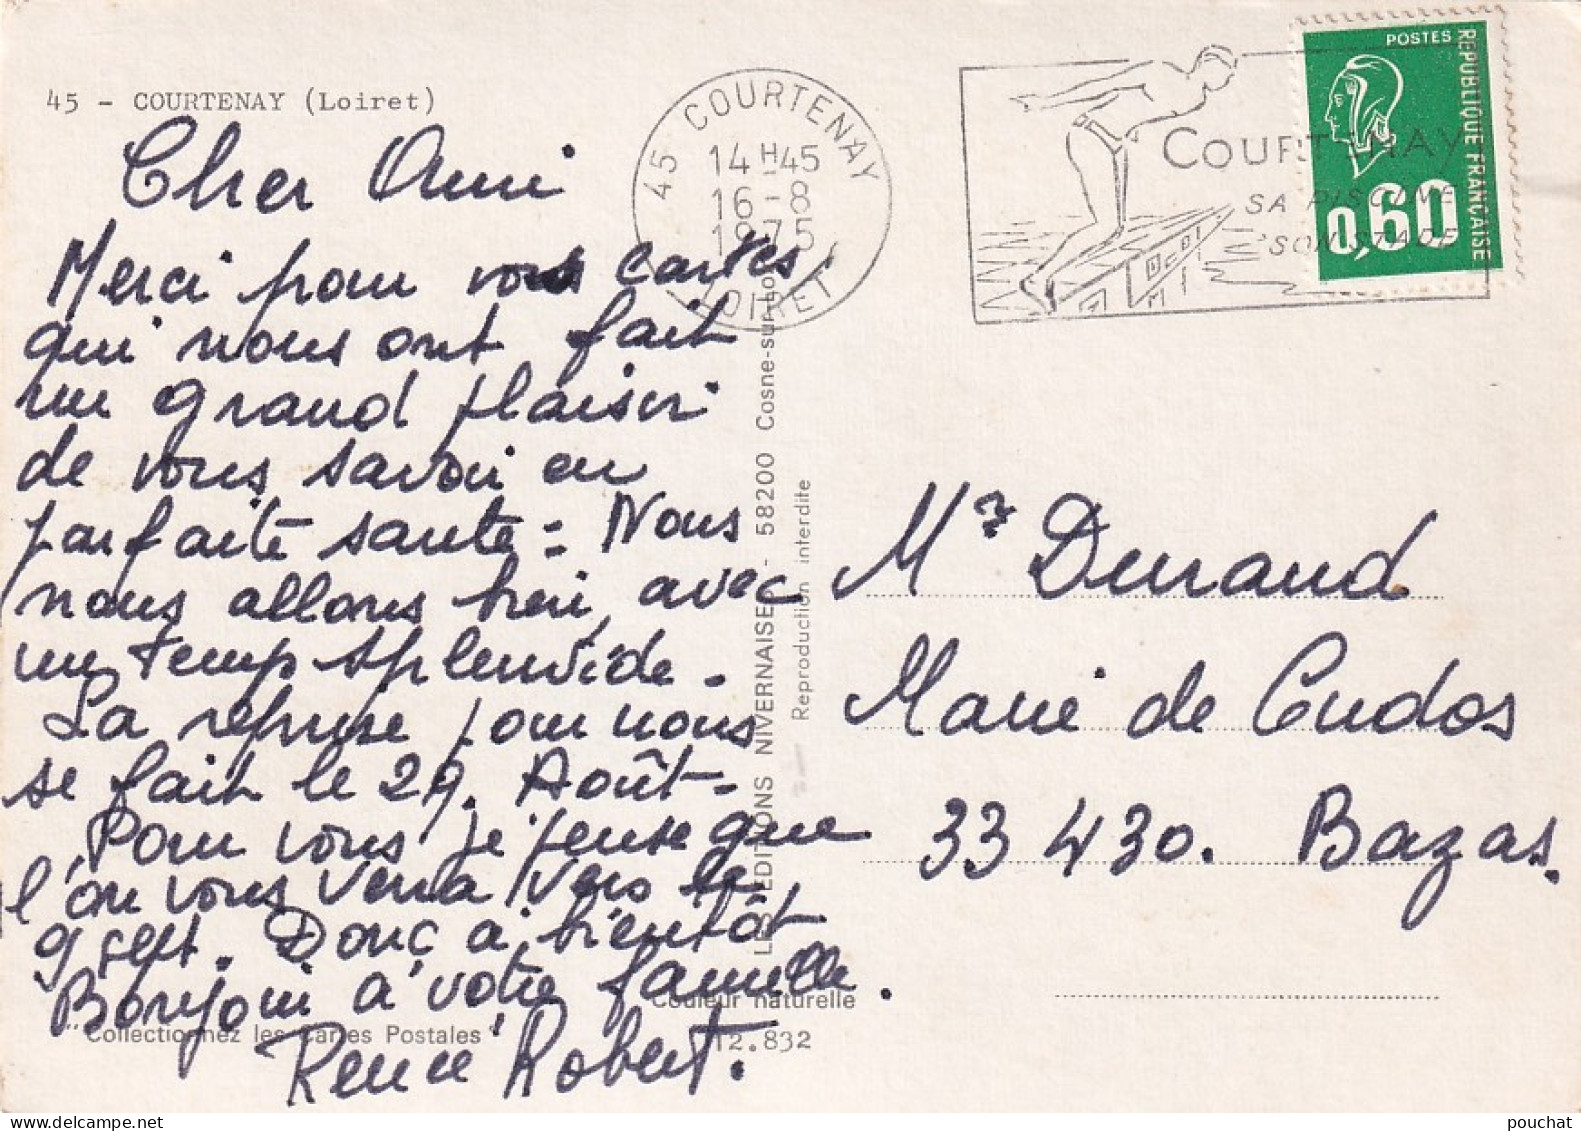 45 - COURTENAY (Loiret)
Cher Ami
Merci pour vos cartes
qui nous ont fait
un grand plaisir
de vous savoir en
parfaite santé = Nous
nous allons bien, avec
un temp splendide -
La reprise pour nous
se fait le 29. Août -
Pour vous je pense que
l'on vous verra vers le
9 sept. Donc à bientôt
Bonjour à votre famille.
Renée Robert.
"Collectionnez les Cartes Postales"
Couleur naturelle
T2.832
LES EDITIONS NIVERNAISE - 58200 Cosne-sur-Loire
Reproduction interdite
45 COURTENAY
14H45
16-8
1975
LOIRET
COURTENAY
SA PISCINE
SON STADE
POSTES
REPUBLIQUE FRANÇAISE
0,60
Mr Durand
Marie de Cudos
33 430. Bazas.
pouchat